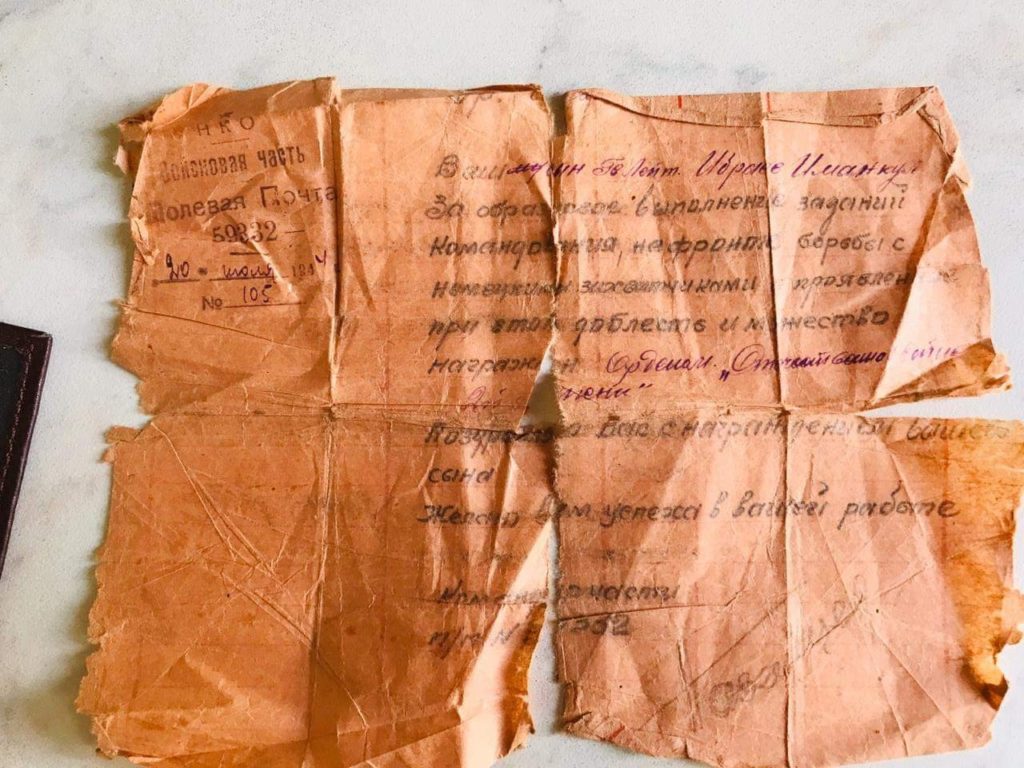 НКО
Войсковая часть
Полевая Почта
59332
20 июля 1944
№ 105
Ваш сын Гв. Лейт.
За образцовое выполнение заданий
Командования, на фронте борьбы с
немецкими захватчиками и проявленные
при этом доблесть и мужество
награжден Орденом „Отечественно войны
2й степени"
Поздравляю Вас с награждением вашего
сына
Желаю Вам успеха в вашей работе
Командир части
п/п №